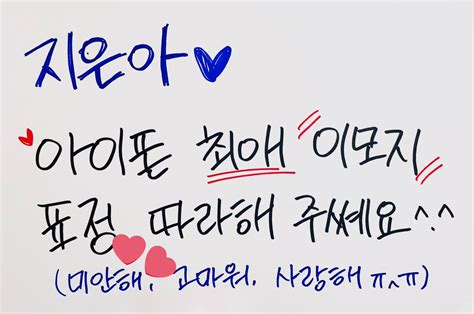 지은아♥
아이폰 최애 "이모지"
표정 따라해 주쎄요^.^
(미안해, 고마워, 사랑해 ㅠ^ㅠ)